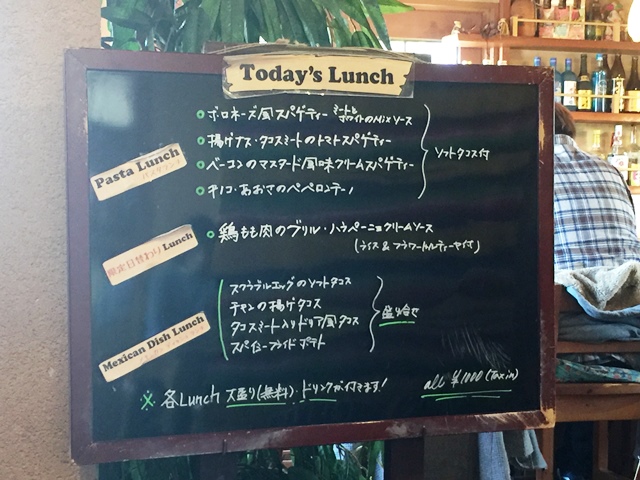 Today's Lunch
Pasta Lunch
パスタランチ
ボロネーズ風スパゲティー ミートとホワイトのMixソース
揚げナス・タコスミートのトマトスパゲティー
ベーコンのマスタード風味クリームスパゲティー
キノコ・あおさのペペロンチーノ
ソフトタコス付
限定日替わりLunch
鶏もも肉のグリル・ハラペーニョクリームソース
(ライス&フラワートルティーヤ付)
Mexican Dish Lunch
スクランブルエッグのソフトタコス
チキンの揚げタコス
タコスミート入りドリア風タコス
スパイシーフライドポテト
盛り合せ
※ 各Lunch 大盛り(無料)・ドリンクが付きます!
all ¥1000 (Tax in)